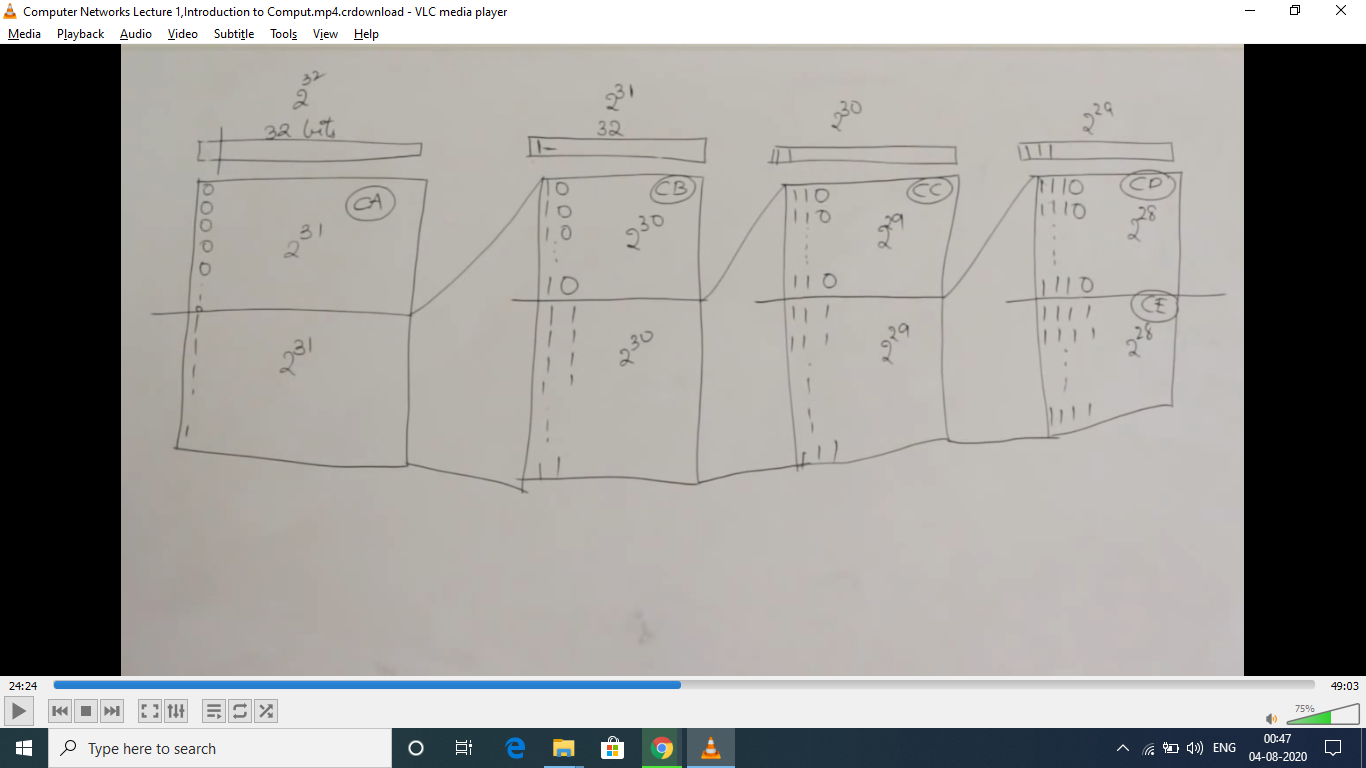 Computer Networks Lecture 1,Introduction to Comput.mp4.crdownload - VLC media player
Media Playback Audio Video Subtitle Tools View Help
2^32
32 bits
0
0
0
0
0
0
CA
2^31
1
1
1
1
1
2^31
2^31
32
1 -
10
10
10
10
CB
2^30
1 1
1 1
1 1
1 1
2^30
2^30
110
110
110
CC
2^29
11 1
11 1
111
2^29
2^29
1110
1110
1110
CD
2^28
CE
1111
1111
1111
2^28
24:24
49:03
75%
Type here to search
ENG
00:47
04-08-2020